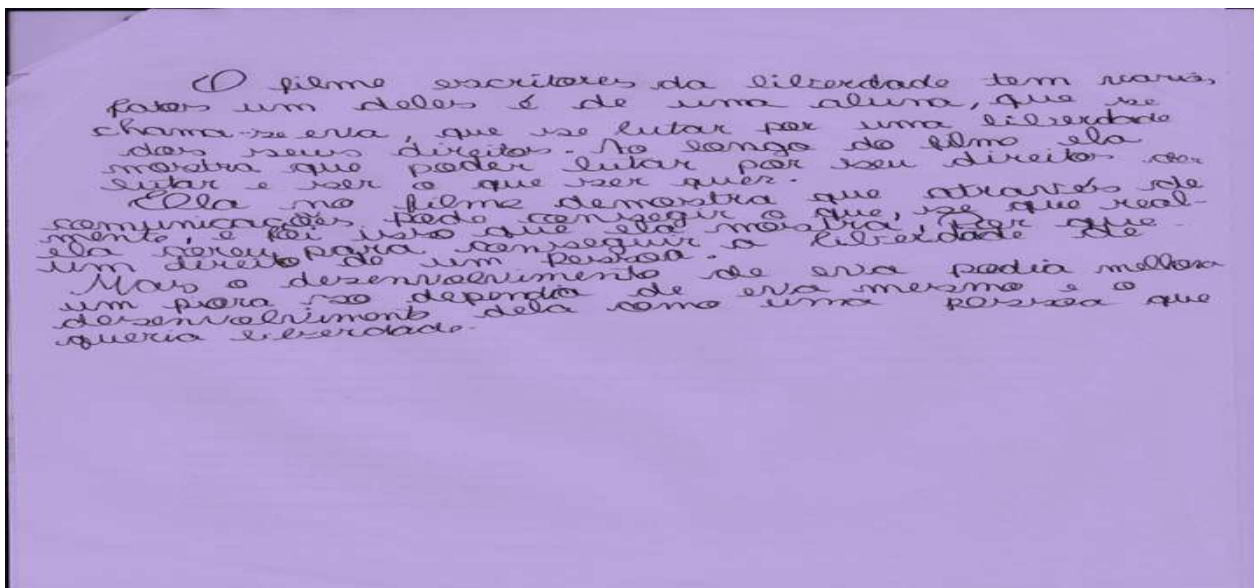 O filme escritores da liberdade tem varios
fatos um deles é de uma aluna, que se
chama-se eva, que se lutar por uma liberdade
dos seus direitos. No longo do filmo ela
mostra que poder lutar por seu direitos
lutar e ser o que ser quer.
Ella no filme demostra que atravéis de
comunicações pode consegir o que, se que real-
mente, e foi isso que ela mostra, por que
ela para conseguir a liberdade de
um direito de um pessoa.
Mais o desenvolvimento de eva podia melhora
um piora so dependia de eva mesmo e o
desenvolviment dela como uma pessoa que
queria liberdade.